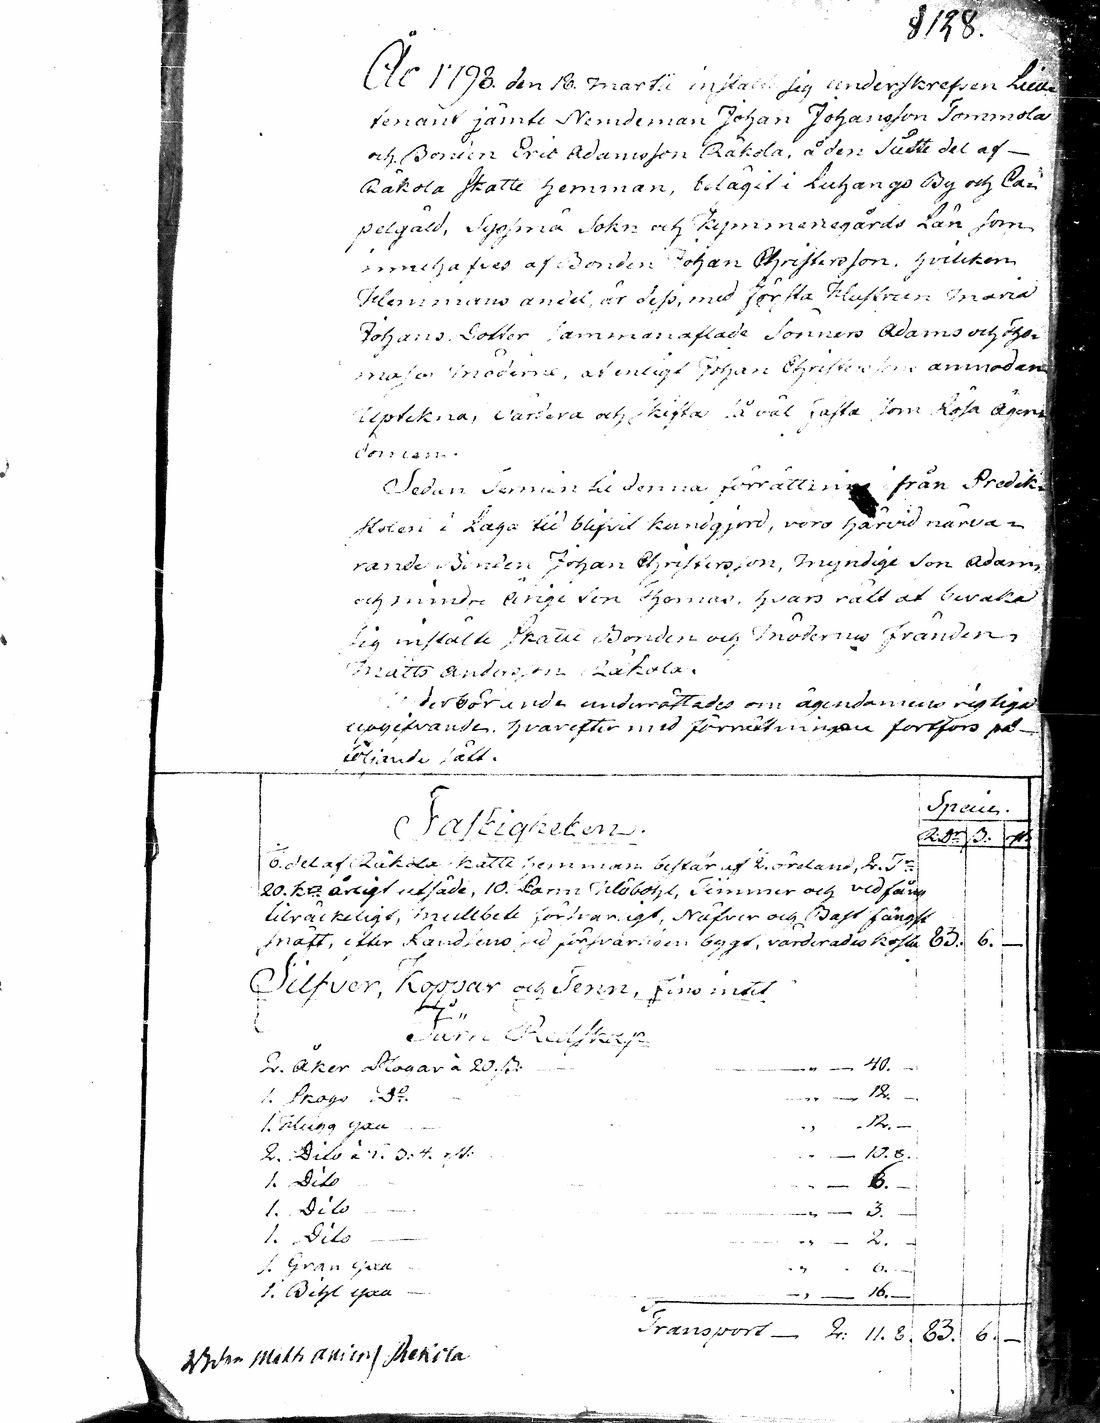 8128.
År 1798. den 18. Martii instält sig underskrefven Lieu-
tenant jämte Nemdeman Johan Johansson Tommola
och Bonden Eric Adamsson Räkola, å den Siette del af
Räkola Skatte Hemman, belägit i Luhango By och Ca-
pelgäld, Sysmä Sokn och Kymmenegårds Län som
innehafves af Bonden Johan Christersson, hvilcken
Hemmans andel, är dess, med första Hustrun Maria
Johans Dotter Sammanaflade Sönners Adams och Tho-
masos Möderne, at enligt Johan Christerssons anmodan
Uptekna, värdera och skifta så väl fasta som Lösa Ägen-
domen.
Sedan Termin til denna förrättning ifrån Predik-
stolen i Laga tid blifvit kundgjord, voro härvid närva-
rande Bonden Johan Christersson, myndige son Adam
och mindre årige son Thomas, hvars rätt at bevaka
sig instälte Skatte Bonden och Mödernes frånden
Matts Andersson Räkola.
Vederbörande underrättades om ägendomens rigtiga
upgifvande, hvarefter med förrättningen fortfors på
följande sätt.
Fastigheten. Specie.
RDr ß. rst.
6. del af Räkola skatte hemman består af 2. öreland, 2. Tr
20. kr årligt utsäde, 10. Larm Höbohl, Timmer och vedfång
tilräckeligt, Mulbete försvarligt, Näfver och Bast fångst
knaft, efter Landsens sed försvarligen bygt, värderades kosta 83. 6. —
Silfver, Koppar och Tenn, fins intet
Järn Redskap
2. Åker Plogar à 20. ß. „ — 40. —
1. Skogs Do „ — 12. —
1. Hugg yxa „ 12. —
2. Dito à 5: 3: 4. rst. „ — 10. 8.
1. Dito „ — 6. —
1. Dito „ — 3. —
1. Dito „ — 2. —
1. Gran yxa „ 6. —
1. Bihl yxa „ — 16. —
Transport — 2: 11. 8. 83. 6. —
Matts Anders Räkola